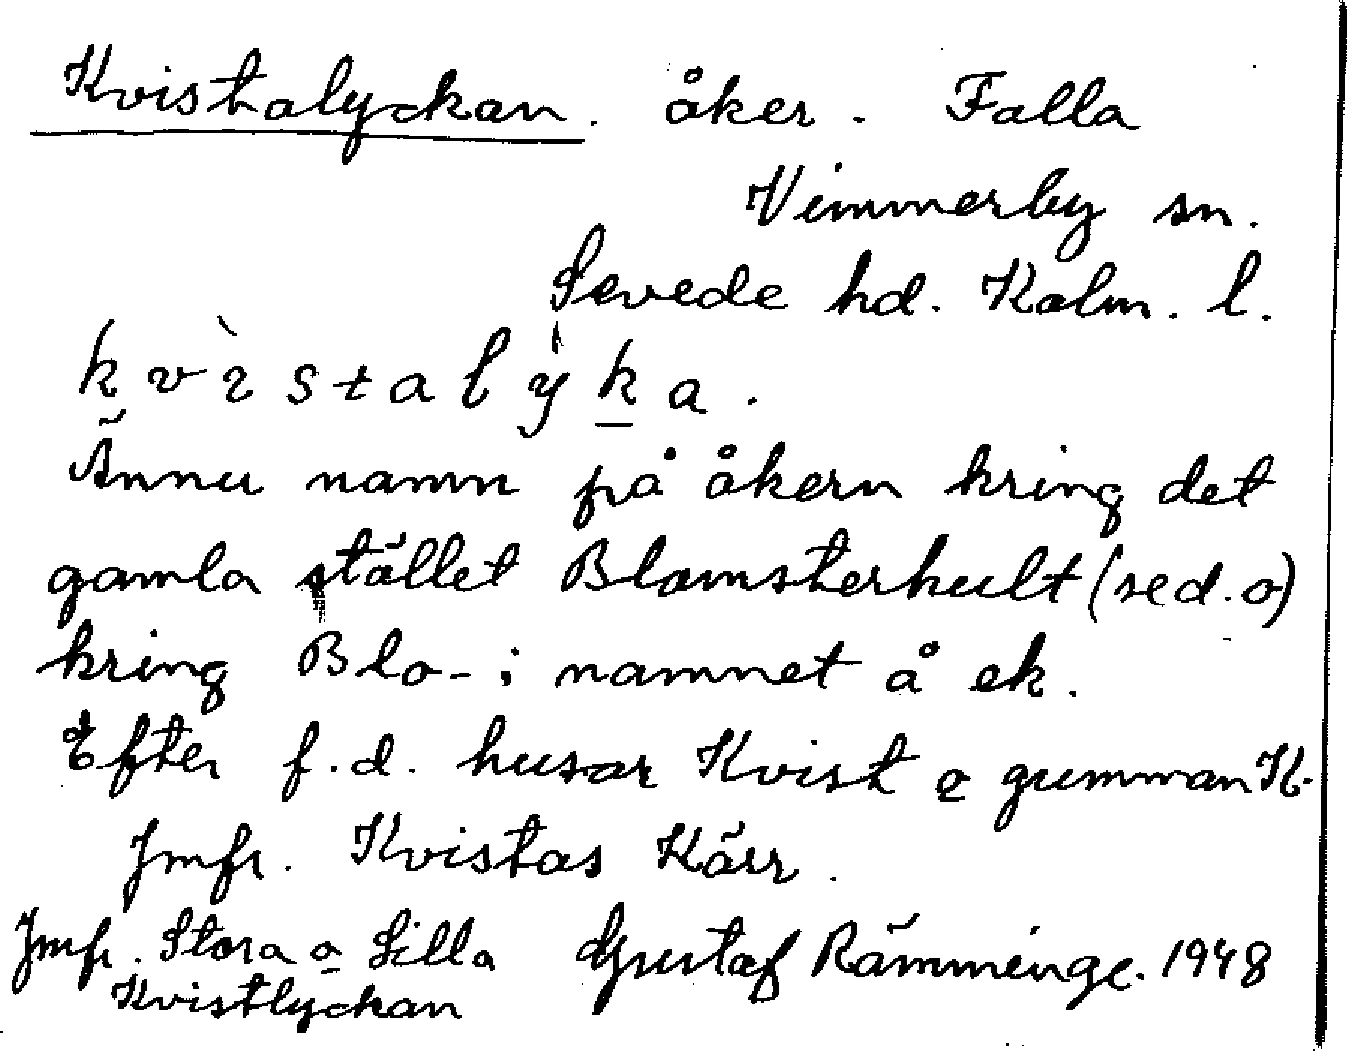 Kvistalyckan. åker. Falla
Vimmerby sn.
Sevede hd. Kalm. l.
kvìstalỳka.
Ännu namn på åkern kring det
gamla stället Blomsterhult (sed. o)
kring Blo-; namnet å ek.
Efter f.d. husar Kvist o gumman K.
Jmfr. Kvistas Kärr.
Jmfr. Stora o Lilla Gustaf Rämminge. 1948
Kvistlyckan